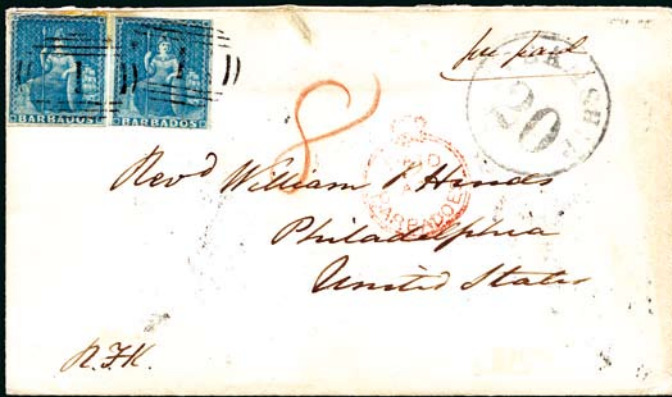 pre paid
BARBADOS BARBADOS
1 1
8
20
PAID
BARBADOES
Revd William P. Hinds
Philadelphia
United States
R.F.K.